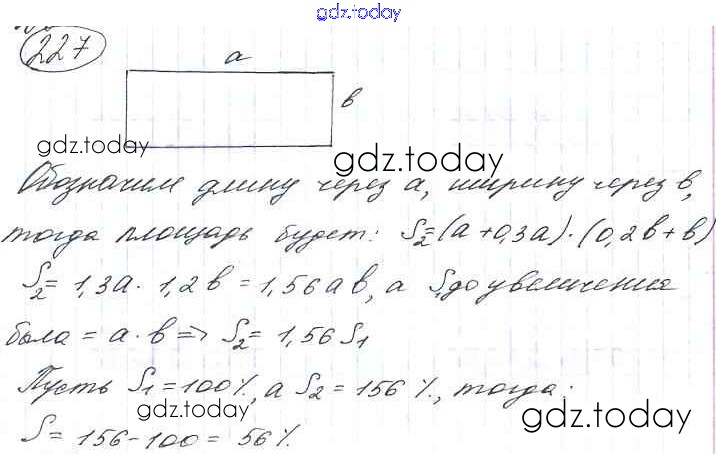 gdz.today
227
a
в
gdz.today
gdz.today
Обозначим длину через а, ширину через в,
тогда площадь будет: S₂=(a+0,3a)·(0,2в+в)
S₂=1,3a·1,2в=1,56aв, а S₁ до увеличения
была = a·в=> S₂=1,56S₁
Пусть S₁=100%, а S₂=156%, тогда:
gdz.today
gdz.today
S=156-100=56%.